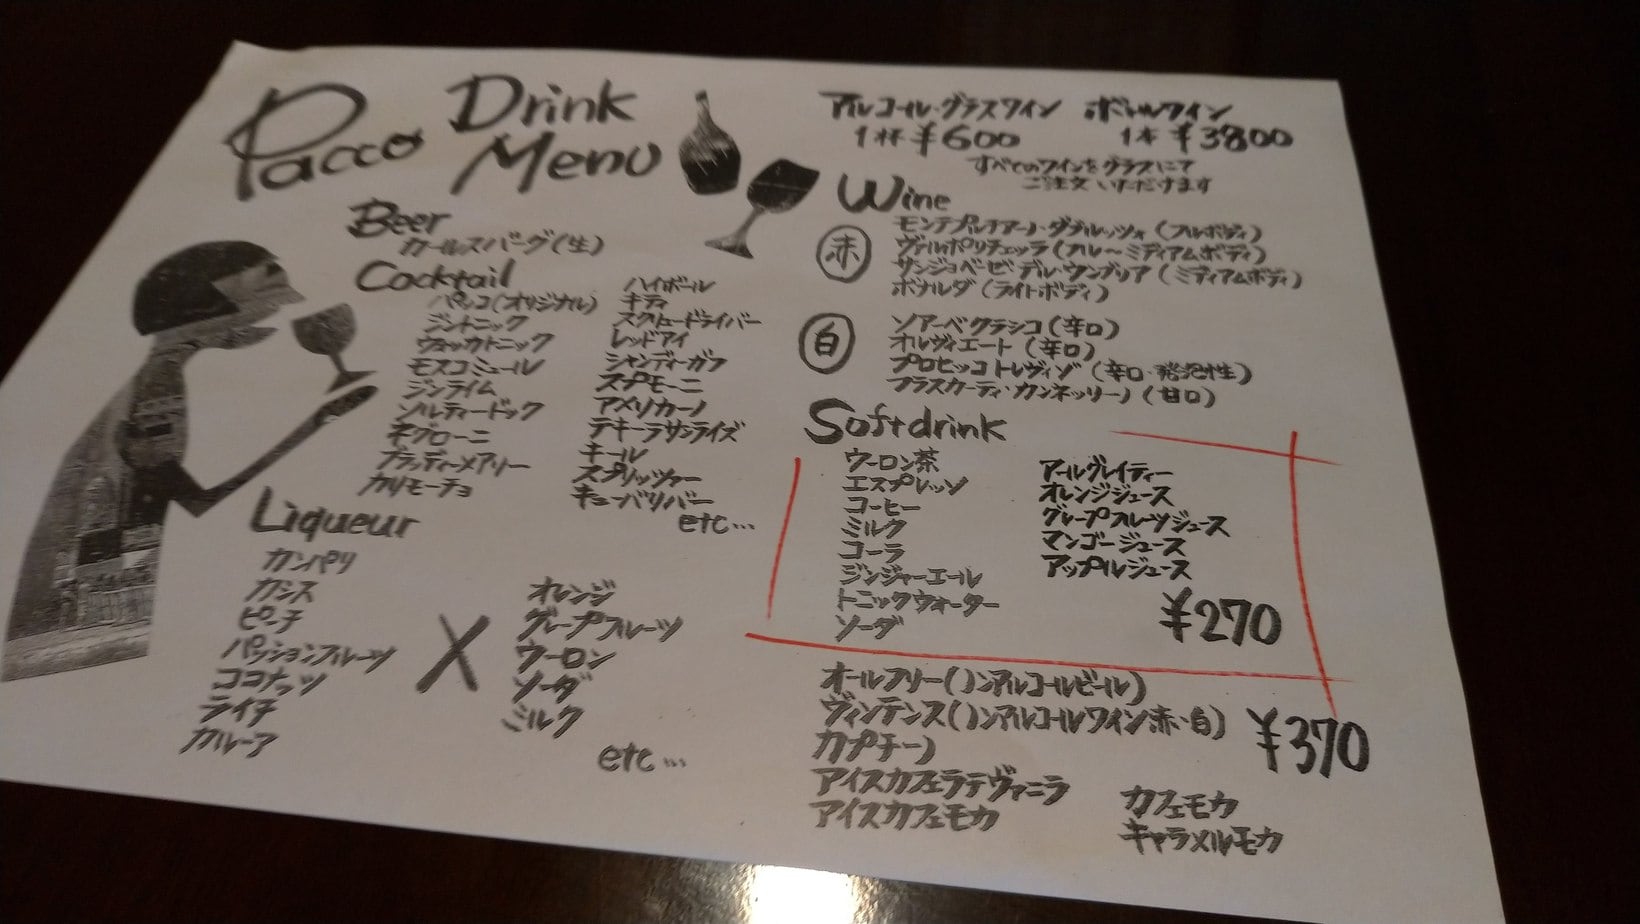 Pacco Drink Menu
アルコール・グラスワイン 1杯 ¥600
ボトルワイン 1本 ¥3800
すべてのワインをグラスにて
ご注文いただけます
Beer
カールスバーグ(生)
Cocktail
パッコ(オリジナル)
ジントニック
ウォッカトニック
モスコミュール
ジンライム
ソルティードック
ネグローニ
ブラッディーメアリー
カリモーチョ
ハイボール
キティ
スクリュードライバー
レッドアイ
シャンディーガフ
スプモーニ
アメリカーノ
テキーラサンライズ
キール
スプリッツァー
キューバリバー
etc...
Liqueur
カンパリ
カシス
ピーチ
パッションフルーツ
ココナッツ
ライチ
カルーア
X
オレンジ
グレープフルーツ
ウーロン
ソーダ
ミルク
etc...
Wine
赤
モンテプルチアーノ・ダブルッツォ(フルボディ)
ヴァルポリチェッラ(フル〜ミディアムボディ)
サンジョベーゼ・デル・ウンブリア(ミディアムボディ)
ボナルダ(ライトボディ)
白
ソアーベ・クラシコ(辛口)
オルヴィエート(辛口)
プロセッコ トレヴィゾ(辛口・発泡性)
フラスカーティ・カンネッリーノ(甘口)
Softdrink
ウーロン茶
エスプレッソ
コーヒー
ミルク
コーラ
ジンジャーエール
トニックウォーター
ソーダ
アールグレイティー
オレンジジュース
グレープフルーツジュース
マンゴージュース
アップルジュース
¥270
オールフリー(ノンアルコールビール)
ヴィンテンス(ノンアルコールワイン赤・白)
カプチーノ
アイスカフェラテヴァニラ
アイスカフェモカ
カフェモカ
キャラメルモカ
¥370